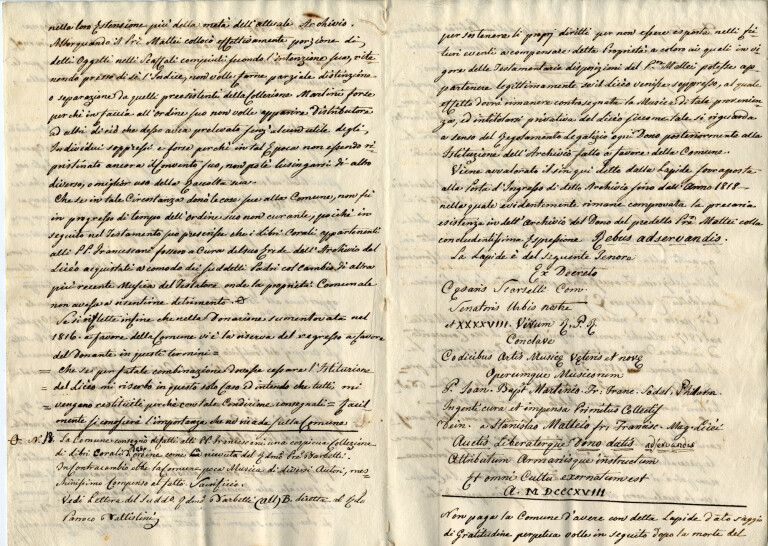 nella loro Estensione più della metà dell'attuale Archivio.
Allorquando il Prē Mattei collocò effettivamente porzione di
detti Oggetti nelli Scaffali compiuti secondo l'intenzione sua, rite
nendo presso di se l'Indice, non volle farne parziale distinzione
o separazione da quelli preesistenti della Collezione Martini forse
perchè in faccia all'ordine suo non volle apparire distributore
ad altri di ciò che desso avea prelevato senz'alcun utile degli
Individui soppressi e forse perchè in tal Epoca non essendo ri-
pristinato ancora il Convento suo, non potè lusingarsi di altro
diverso, o miglior uso della Raccolta sua.
Che se in tale Circostanza donò le cose sue alla Comune, non fu
in progresso di tempo dell'ordine suo non curante, poichè in
seguito nel Testamento suo prescrisse che i Libri Corali appartenenti
alli P.P. Francescani fossero a Cura del suo Erede dall'Archivio del
Liceo acquistati a comodo dei suddetti Padri col Cambio di altra
più recente Musica del Testatore onde la proprietà Comunale
non avesse a risentirne detrimento.
Se si riflette infine che nella Donazione summentovata nel
1816 a favore della Comune vi è la riserva del regresso a favore
del Donante in questi termini =
= Che se per fatale combinazione dovesse cessare l'Istituzione
= del Liceo mi riserbo in questo solo Caso ed intendo che tutti mi
= vengano restituiti perchè con tale Condizione consegnati = facil
mente si conoscerà l'importanza che ne ricade sulla Comune
N. 13. La Comune consegnò difatti alli PP. Francescani una copiosa Collezione
di Libri Corali di loro ordine come da ricevuta del Qdm Prē Barbetti.
In contracambio ebbe la Comune poca Musica di diversi Autori, mes-
chinissimo Compenso al fatto Sacrificio.
Vedi Lettera del Sudd.o Qdm Barbetti (All) B. diretta al
Parroco Vallistini
per sostenere li proprj diritti per non essere esposta nelli fu
turi eventi a compensare della Proprietà a coloro ai quali in vi
gore delle Testamentarie disposizioni del Prē Mattei potesse ap-
partenere legittimamente se il Liceo venisse soppresso, al quale
effetto dovrà rimanere contrasegnata la Musica di tale provenien
za, ed intitolarsi privativa del Liceo siccome tale si riguarda
a senso del Regolamento legalizio ogni Dono posteriormente alla
Istituzione dell'Archivio fatto a favore della Comune.
Viene avvalorato il sin qui detto dalla Lapide sovraposta
alla porta d'Ingresso di detto Archivio sino dall'Anno 1818
nella quale evidentemente rimane comprovata la precaria
esistenza in dett'Archivio del Dono del predetto Prē Mattei colla
concludentissima Espressione Rebus adservandis.
La Lapide è del Seguente Tenore
Ex Decreto
Cesaris Scarselli Com.
Senatoris Urbis nostre
et XXXXVIII. Virum
Conclave
Codicibus Artis Musice Veteris et nove
Operumque Musicorum
P. Ioan. Bapt. Martineo. Fr. Franc. Sodal. Philarm
Ingenti cura et impensa Primitus Collectis
Dein. a Stanislao Matteio fr. Francisc. Mag. Licei
Auctis Liberatorque Dono datis adservandis
Attributum Armariisque instructum
Et omni Cultu exornatum est
A. MDCCCXVIII
Non paga la Comune d'avere con detta Lapide dato saggio
di Gratitudine perpetua volle in seguito dopo la morte del